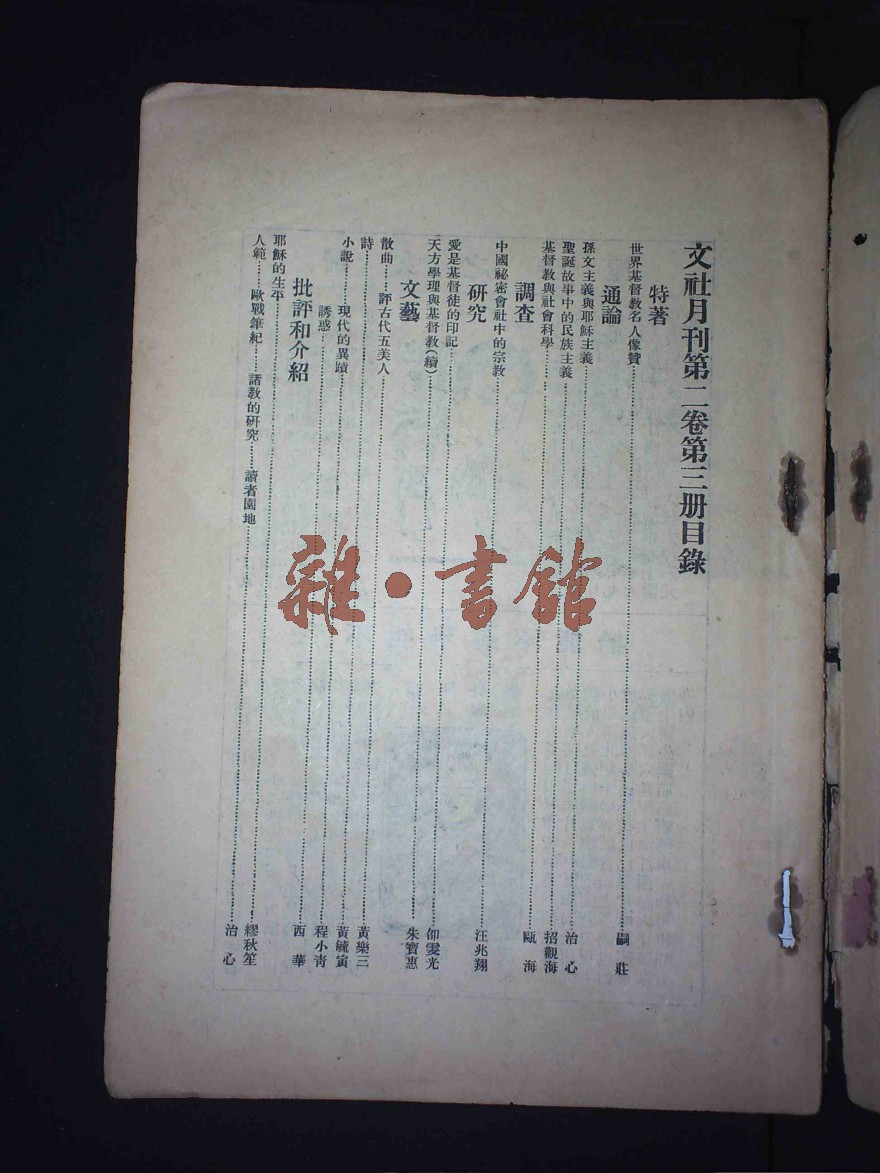 文社月刊第二卷第三册目錄
特著
世界基督教名人像贊……嗣莊
通論
孫文主義與耶穌主義……治心
聖誕故事中的民族主義……招觀海
基督教與社會科學……甌海
調查
中國祕密會社中的宗教……汪兆翔
研究
愛是基督徒的印記……雯光
天方學理與基督教(續)……朱寶惠
文藝
散曲……評古代五美人……黃樂三
詩……黃毓寅
小說……現代的異蹟……程小青
誘惑……西華
批評和介紹
耶穌的生平……繆秋笙
人範……歐戰筆紀……諸教的研究……讀者園地……治心
雜·書館